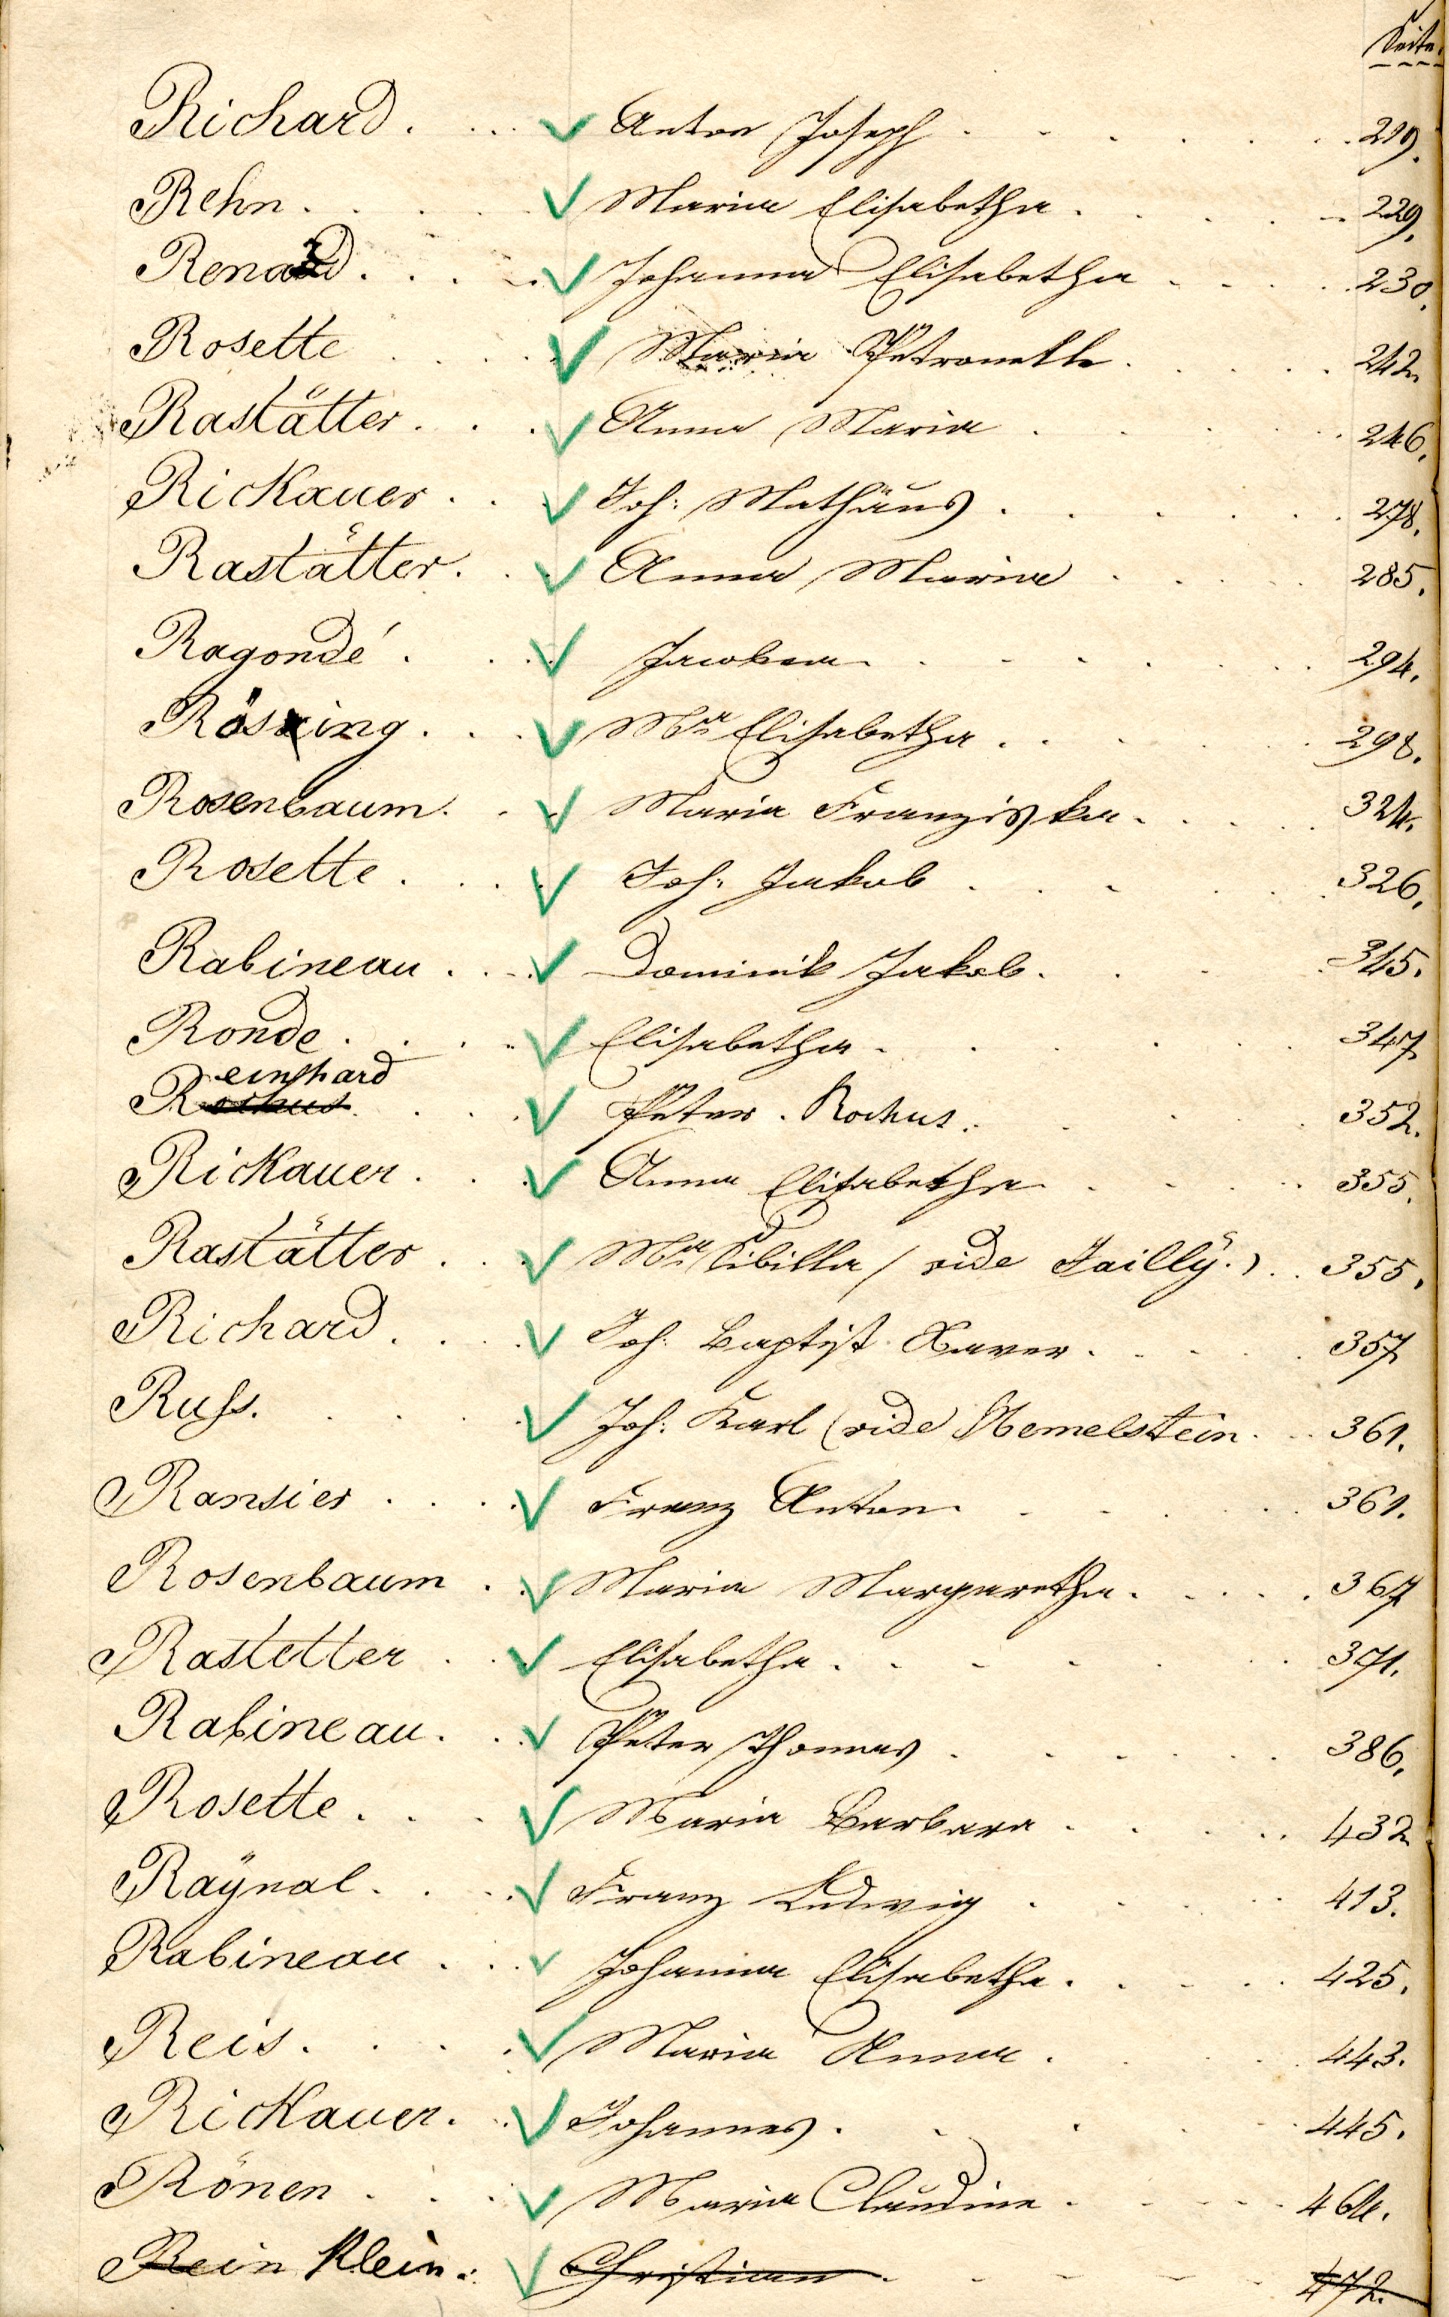 Seite.
Richard. . . . Anton Joseph . . . . . . 219.
Rehn. . . . . Maria Elisabetha . . . . . 229.
Renard. . . . Johanna Elisabetha . . . . 230.
Rosette . . . Maria Petronella . . . . . 242.
Rastätter. . . Anna Maria . . . . . 246.
Rickauer . . . Joh: Mathäus . . . . . . 278.
Rastätter. . . Anna Maria . . . . 285.
Ragondé . . . Jacobea . . . . . . . 294.
Rösing. . . . Mᵃ Elisabetha . . . . . 298.
Rosenbaum. . . Maria Franziska . . . . . 324.
Rosette . . . Joh: Jakob . . . . . . 326.
Rabineau . . . Dominik Jakob. . . . . 345.
Ronde . . . . Elisabetha . . . . . . 347
einhard
Rochus . . . . Peter . Rochus. . . . . 352.
Rickauer . . . Anna Elisabetha . . . . . 355.
Rastätter . . . Mᵃ Sibilla / vide Jaillÿ.) . . 355.
Richard. . . . Joh. Baptist Xaver . . . . . 357
Ruſs. . . . . Joh: Karl (vide Memelstein . . 361.
Ransier . . . . Franz Anton . . . . . 361.
Rosenbaum . . Maria Margaretha . . . . 367
Rastetter . . . Elisabetha . . . . . . . 371.
Rabineau. . . Peter Thomas . . . . . . 386.
Rosette . . . Maria Barbara . . . . . 432
Raÿnal. . . . Franz Ludwig . . . . . 413.
Rabineau . . . Johanna Elisabetha . . . . . 425.
Reis. . . . . Maria Anna . . . . . 443.
Rickauer. . . Johannes . . . . . . 445.
Rönen . . . . Maria Claudina . . . . . 464.
Rein Klein. . Christian . . . . . . 472.